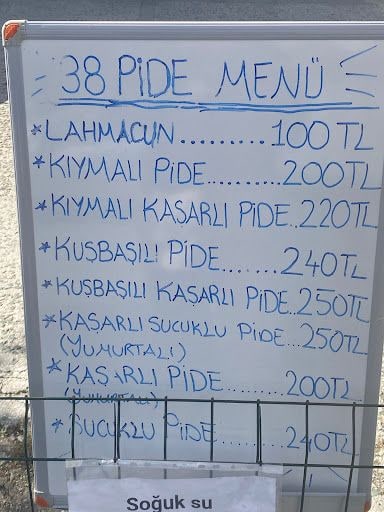 38 PİDE MENÜ
*LAHMACUN.........100TL
*KIYMALI PİDE.........200TL
*KIYMALI KAŞARLI PİDE..220TL
*KUŞBAŞILI PİDE.......240TL
*KUŞBAŞILI KAŞARLI PİDE..250TL
*KAŞARLI SUCUKLU PİDE...250TL
(YUMURTALI)
*KAŞARLI PİDE.........200TL
(YUMURTALI)
*SUCUKLU PİDE.........240TL
Soğuk su